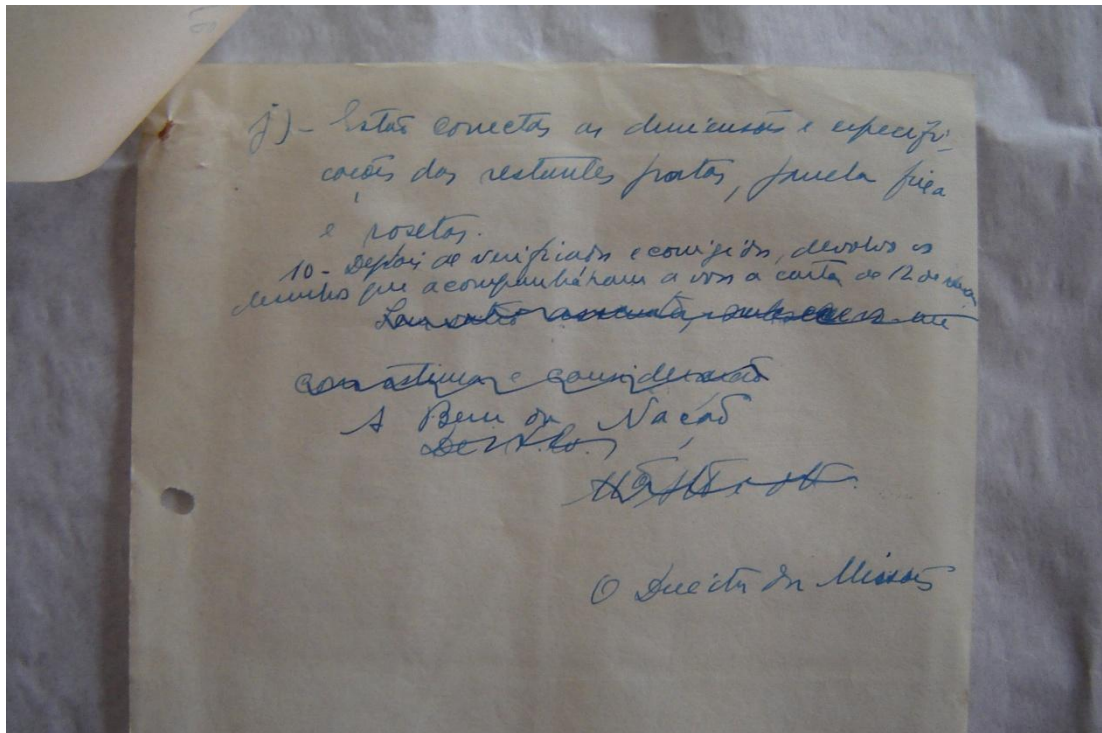 j) - Estão correctas as dimensões e especifi-
cações das restantes portas, janela fixa
e rosetas.
10 - Depois de verificados e corrigidos, devolvo os
desenhos que acompanhavam a vossa carta de 12 de
Sem outro assunto, subscrevo-me
com estima e consideração
A Bem da Nação
De V.
O Director da Missão